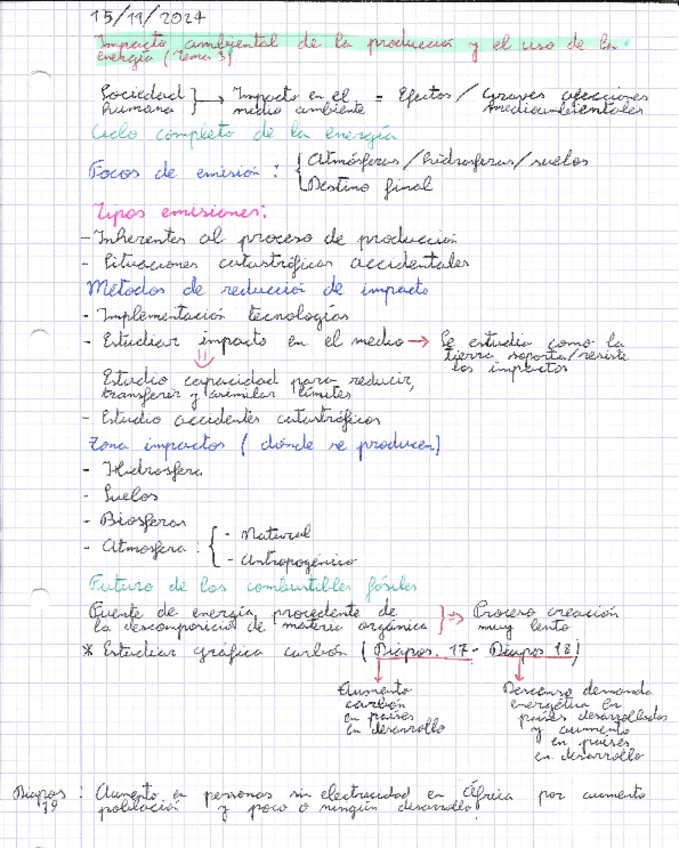 15/19/2024
Impacto ambiental de la producción y el uso de la
energía (Tema 3)
Sociedad humana } → Impacto en el medio ambiente = Efectos / Graves afecciones medioambientales
Ciclo completo de la energía
Focos de emisión : { Atmósferas/hidrosferas/suelos
Destino final
Tipos emisiones:
- Inherentes al proceso de producción
- Situaciones catastróficas accidentales
Métodos de reducción de impacto
- Implementación tecnologías
- Estudiar impacto en el medio → Se estudia como la
tierra soporta/resiste
los impactos
Estudio capacidad para reducir,
transferir y asimilar límites
- Estudio accidentes catastróficos
Zona impactos ( dónde se producen)
- Hidrosfera
- Suelos
- Biosferas
- Atmosfera : { - Natural
- Antropogénico
Futuro de los combustibles fósiles
Fuente de energía procedente de
la descomposición de materia orgánica } ⇒ Proceso creación
muy lento
* Estudiar gráfica carbón ( Diapos. 17 - Diapos 18)
Aumento
carbón
en países
en desarrollo
Descenso demanda
energética en
países desarrollados
y aumento
en países
en desarrollo
Diapos 19 : Aumento en personas sin electricidad en África por aumento
población y poco o ningún desarrollo.